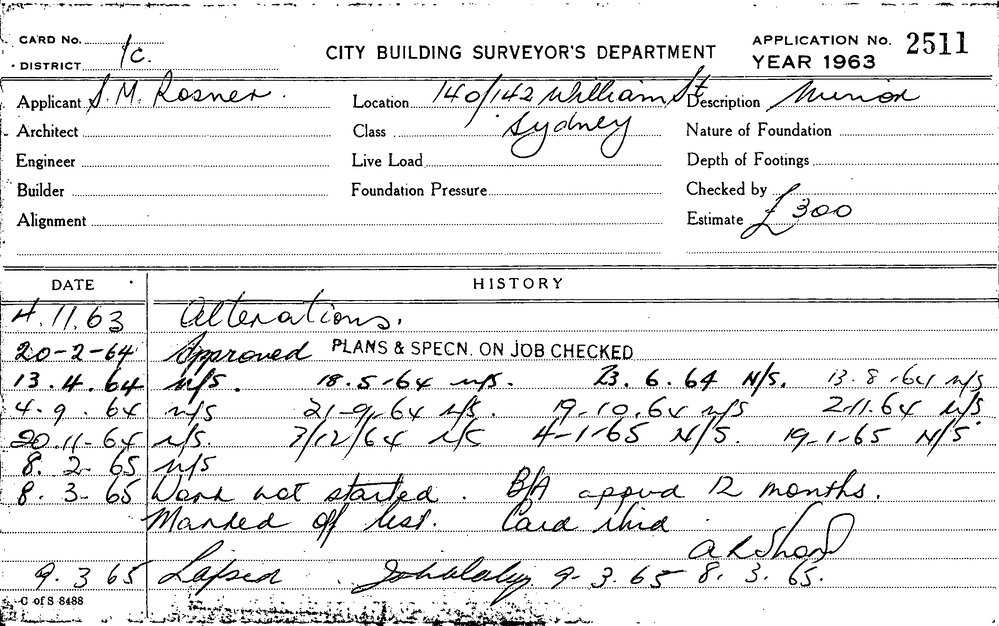 CARD No. 1c. CITY BUILDING SURVEYOR'S DEPARTMENT APPLICATION No. 2511
DISTRICT YEAR 1963
Applicant S. M. Rosner. Location 140/142 William St Description Minor
Architect Class Sydney Nature of Foundation
Engineer Live Load Depth of Footings
Builder Foundation Pressure Checked by
Alignment Estimate £300
DATE HISTORY
4.11.63 Alterations.
20-2-64 Approved PLANS & SPECN. ON JOB CHECKED
13.4.64 n/s. 18.5-64 n/s. 23.6.64 N/S. 13.8.64 n/s
4.9.64 n/s 21-9-64 n/s. 19.10.64 n/s 2.11.64 n/s
20.11-64 n/s. 3/12/64 n/s 4-1-65 N/S. 19-1-65 N/S
8.2-65 n/s
8.3-65 Work not started. B/A appvd 12 months.
Marked off list. Card
9.3 65 Lapsed 9-3.65 8.3.65.
C of S 8488